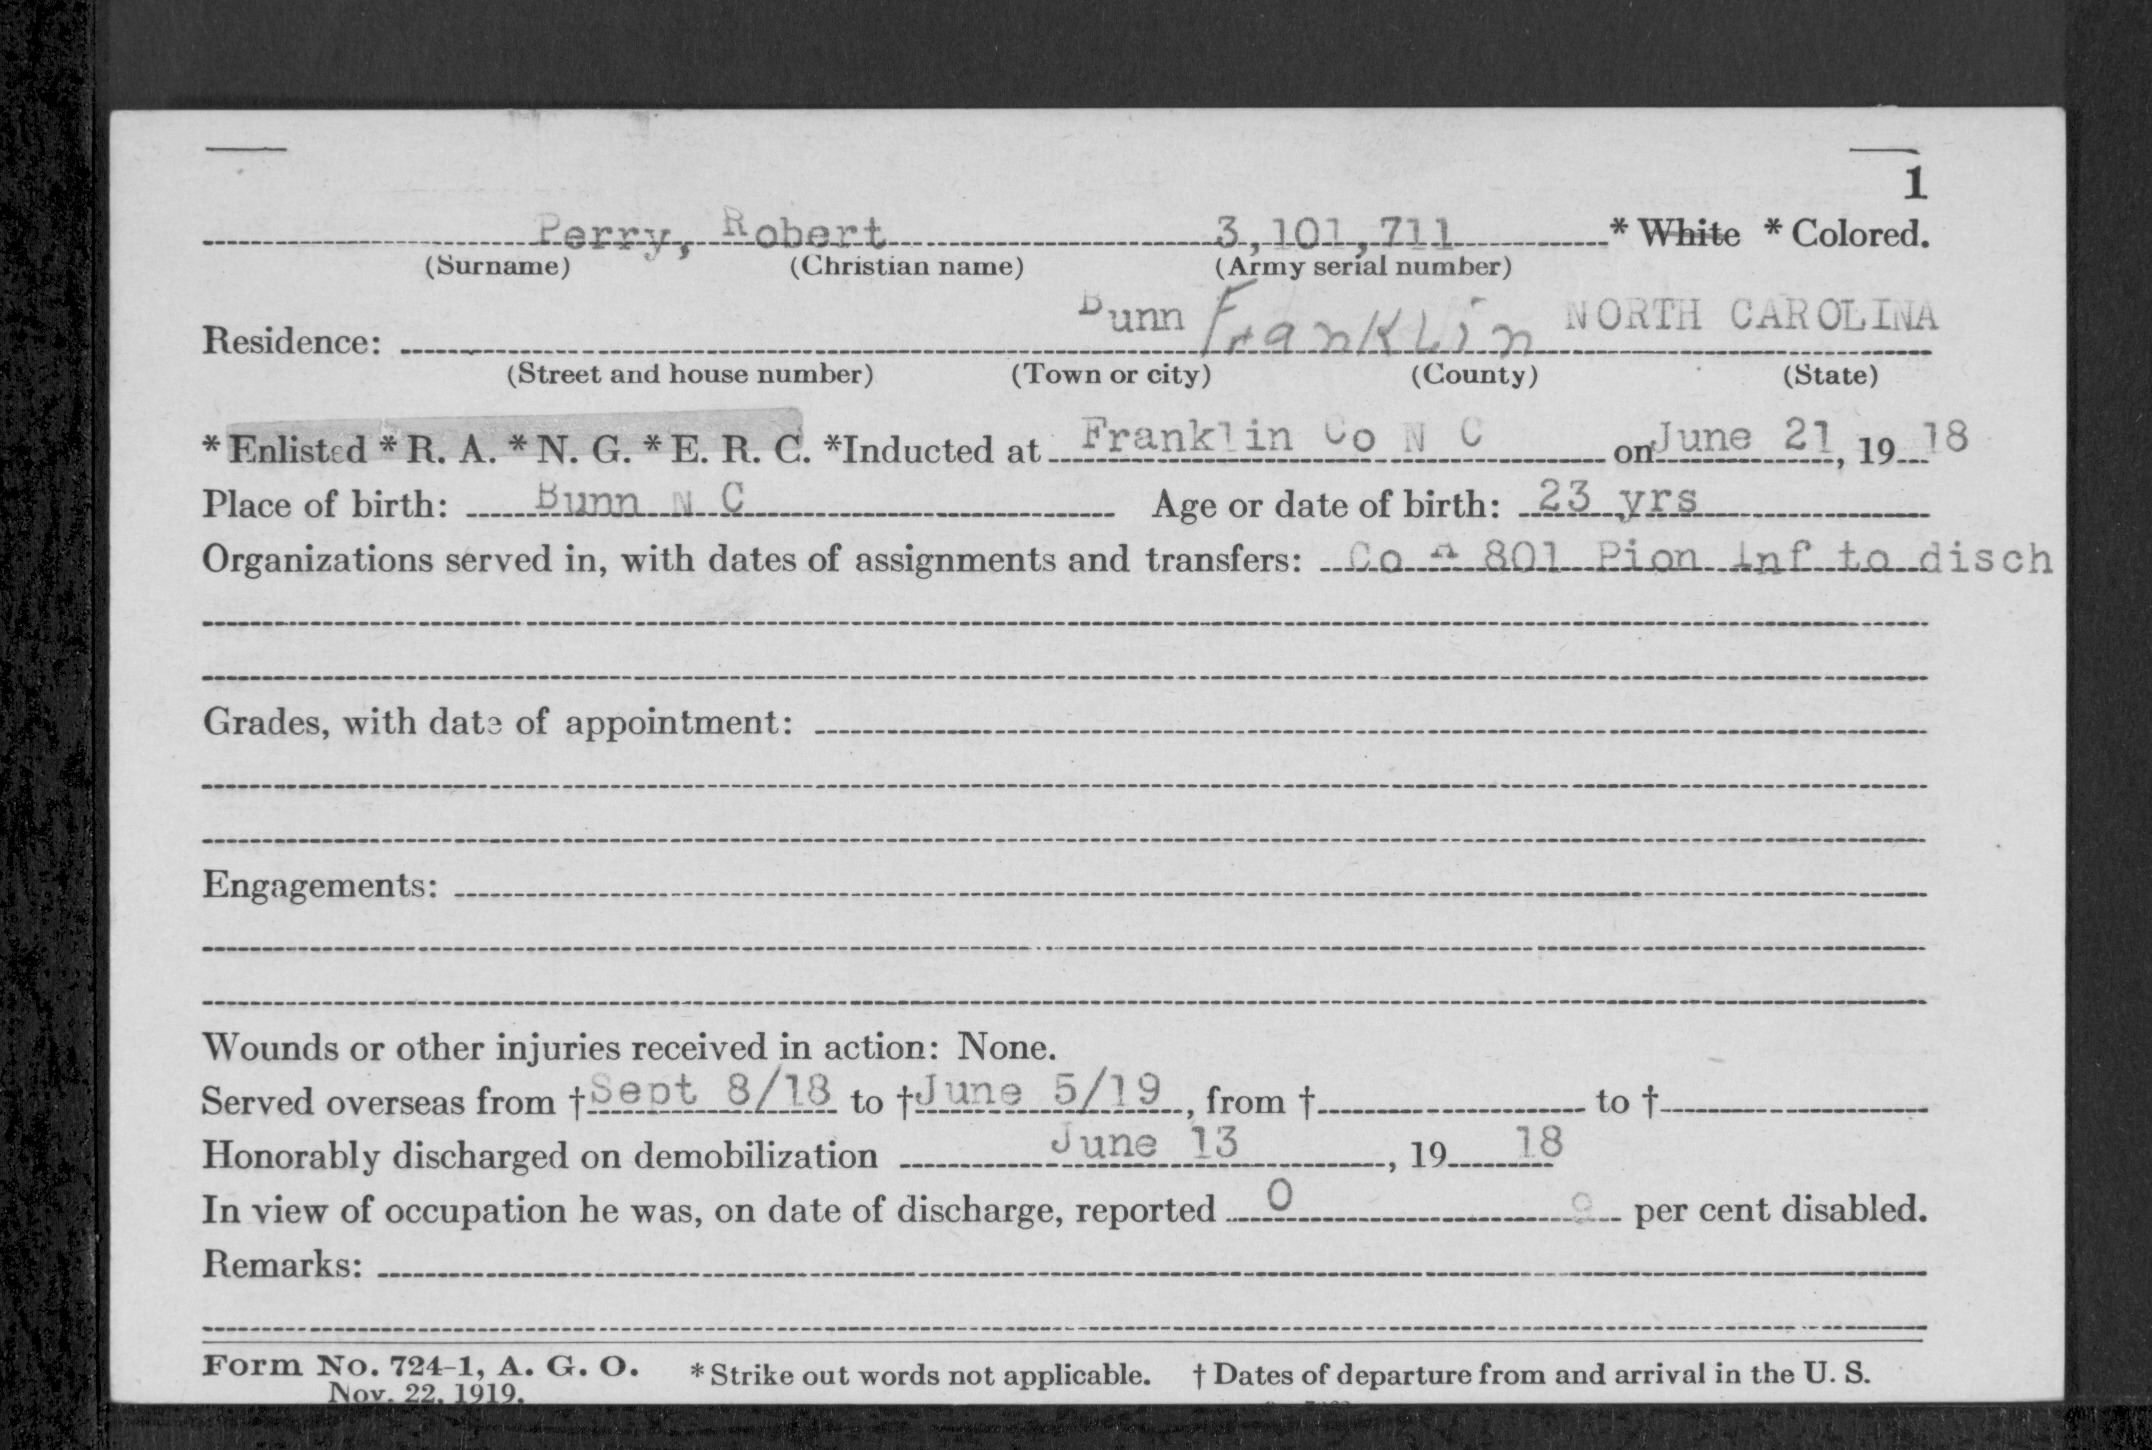 1
Perry, Robert 3,101,711 * White * Colored.
(Surname) (Christian name) (Army serial number)
Residence: Bunn Franklin NORTH CAROLINA
(Street and house number) (Town or city) (County) (State)
* Enlisted * R. A. * N. G. * E. R. C. *Inducted at Franklin Co N C on June 21, 19 18
Place of birth: Bunn N C Age or date of birth: 23 yrs
Organizations served in, with dates of assignments and transfers: Co A 801 Pion Inf to disch
Grades, with date of appointment:
Engagements:
Wounds or other injuries received in action: None.
Served overseas from † Sept 8/18 to † June 5/19, from † to †
Honorably discharged on demobilization June 13, 19 18
In view of occupation he was, on date of discharge, reported 0 per cent disabled.
Remarks:
Form No. 724-1, A. G. O. * Strike out words not applicable. † Dates of departure from and arrival in the U. S.
Nov. 22, 1919.